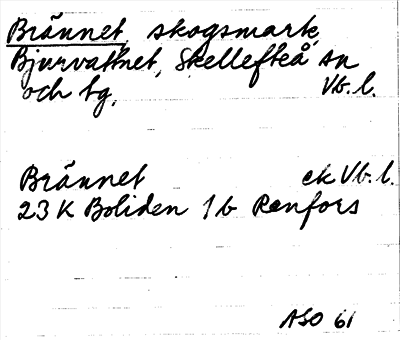 Brännet, skogsmark,
Bjurvattnet, Skellefteå sn
och tg, Vb.l.
Brännet ek Vb.l.
23 K Boliden 1b Renfors
ASO 61